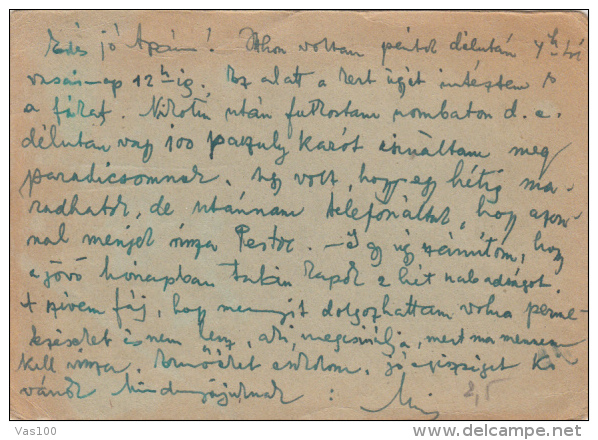 Édes jó Apám! Itthon voltam péntek délután 4h-tól
vasárnap 12h-ig. Ez alatt a kert ügyét intéztem
a fákat. Nikotin után futkostam szombaton d. e.
délután vagy 100 paszuly karót csináltam meg
paradicsomnak. Úgy volt, hogy egy hétig ma-
radhatok, de utánnam telefonáltak, hogy azon-
nal menjek vissza Pestre. – Így úgy számítom, hogy
a jövő hónapban talán kapok 2 hét szabadságot.
A szívem fáj, hogy mennyit dolgozhattam volna
kell vissza. kezeidet csókolom. jó egészséget kí
vánok Mindnyájuknak :
2,5
Vas100
delcampe.net